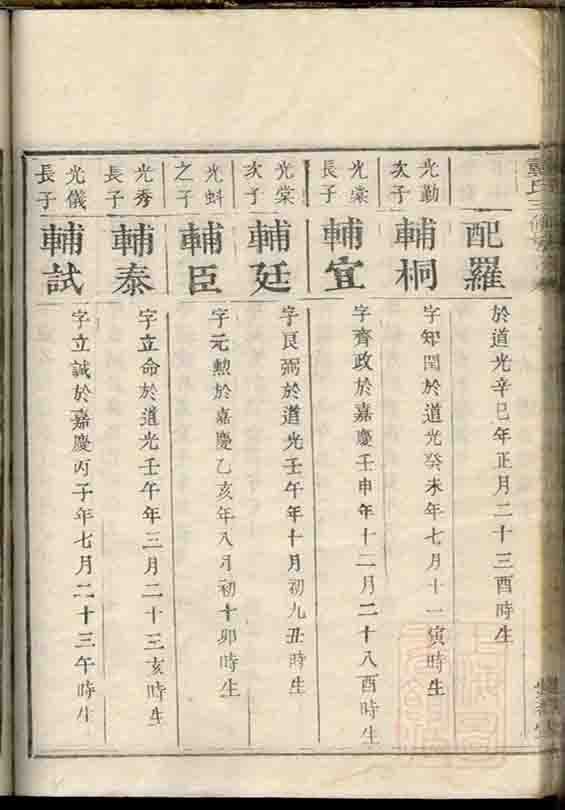 配羅
於道光辛巳年正月二十三酉時生
光勤次子
輔桐
字知閏於道光癸未年七月十一寅時生
光棠長子
輔宜
字齊政於嘉慶壬申年十二月二十八酉時生
光棠次子
輔廷
字良弼於道光壬午年十月初九丑時生
光蚪之子
輔臣
字元勲於嘉慶乙亥年八月初十卯時生
光秀長子
輔泰
字立命於道光壬午年三月二十三亥時生
光儀長子
輔試
字立誠於嘉慶丙子年七月二十三午時生